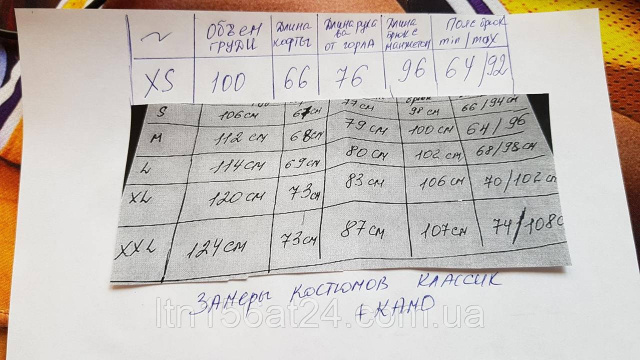 ~ Объем груди Длина кофты Длина рукава от горла Длина брюк с манжетом Пояс брюк min/max
XS 100 66 76 96 64/92
S 106см 67см 77см 98см 66/94см
M 112см 68см 79см 100см 64/96
L 114см 69см 80см 102см 68/98см
XL 120см 73см 83см 106см 70/102см
XXL 124см 73см 87см 107см 74/108с
Замеры костюмов классик
+ КАМО
ltm156at24.com.ua